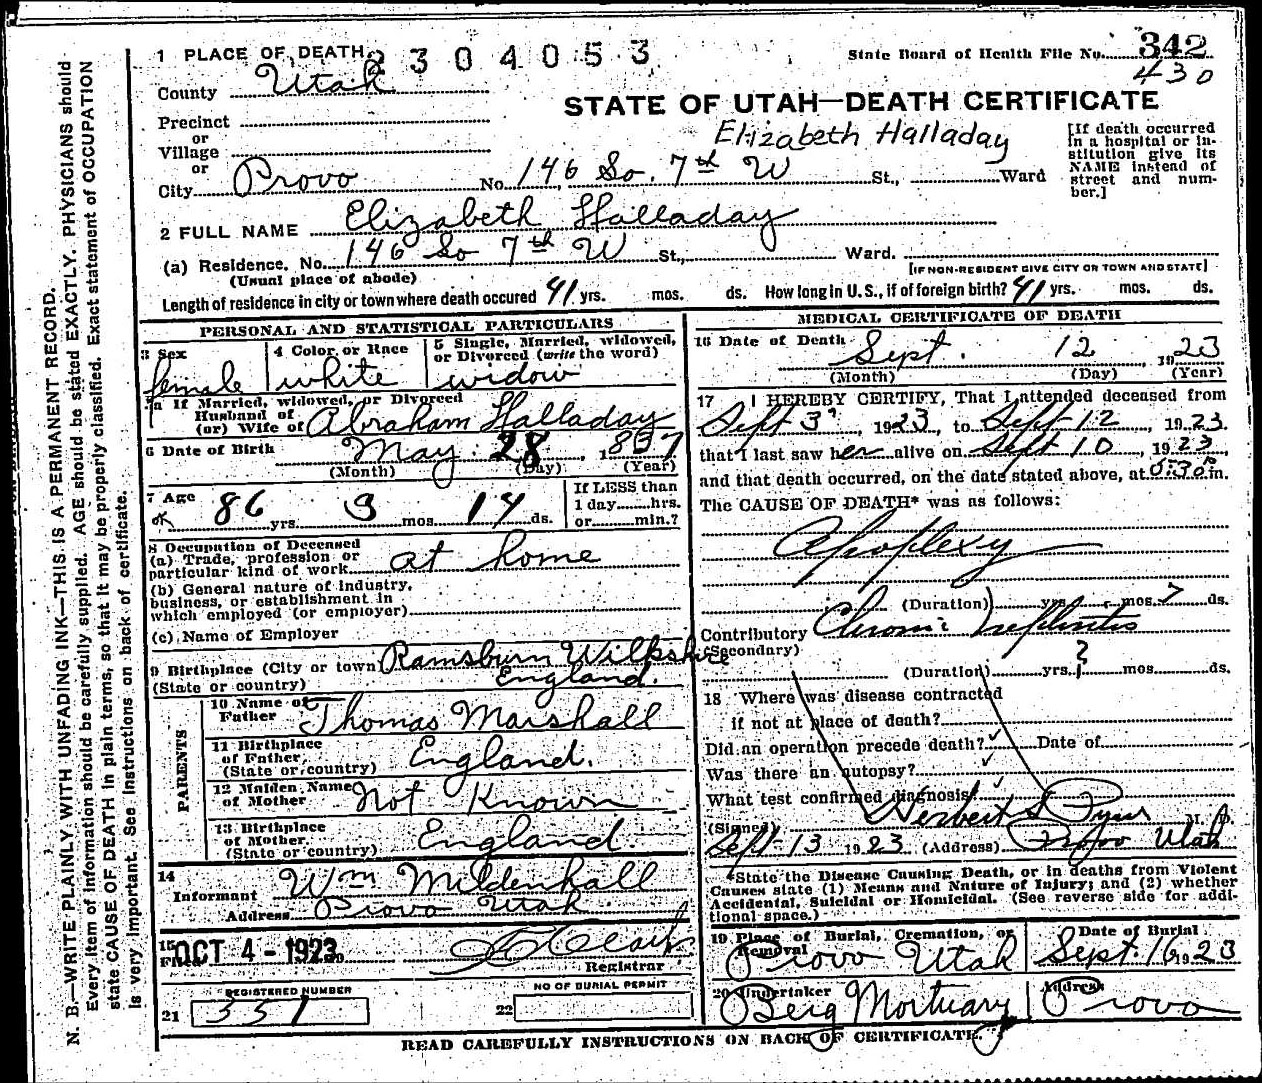 1 PLACE OF DEATH 2304053 State Board of Health File No. 342
430
County Utah
STATE OF UTAH—DEATH CERTIFICATE
Precinct
or
Village
or
City Provo No. 146 So. 7th W St., Ward
Elizabeth Halladay
[If death occurred in a hospital or institution give its NAME instead of street and number.]
2 FULL NAME Elizabeth Halladay
(a) Residence. No. 146 So 7th W St., Ward.
(Usual place of abode) [IF NON-RESIDENT GIVE CITY OR TOWN AND STATE]
Length of residence in city or town where death occured 41 yrs. mos. ds. How long in U. S., if of foreign birth? 41 yrs. mos. ds.
PERSONAL AND STATISTICAL PARTICULARS
3 Sex female
4 Color or Race white
5 Single, Married, widowed, or Divorced (write the word) widow
5a If Married, widowed, or Divorced
Husband of
(or) Wife of Abraham Halladay
6 Date of Birth May 28, 1837
(Month) (Day) (Year)
7 Age 86 yrs. 3 mos. 14 ds.
If LESS than
1 day hrs.
or min.?
8 Occupation of Deceased
(a) Trade, profession or
particular kind of work at home
(b) General nature of industry,
business, or establishment in
which employed (or employer)
(c) Name of Employer
9 Birthplace (City or town) Ramsburn Wilkshire
(State or country) England.
PARENTS
10 Name of
Father Thomas Marshall
11 Birthplace
of Father
(State or country) England.
12 Maiden Name
of Mother Not Known
13 Birthplace
of Mother.
(State or country) England.
14
Informant Wm Mildenhall
Address Provo Utah.
15
OCT 4 - 1923
Registrar
REGISTERED NUMBER
21 351
NO OF BURIAL PERMIT
22
MEDICAL CERTIFICATE OF DEATH
16 Date of Death Sept. 12 1923
(Month) (Day) (Year)
17 I HEREBY CERTIFY, That I attended deceased from
Sept 3, 1923, to Sept 12, 1923.
that I last saw her alive on Sept 10, 1923,
and that death occurred, on the date stated above, at 5:30 P m.
The CAUSE OF DEATH* was as follows:
Apoplexy
(Duration) yrs. mos. 7 ds.
Contributory Chronic Nephritis
(Secondary)
(Duration) yrs. ? mos. ds.
18 Where was disease contracted
if not at place of death?
Did an operation precede death? ✓ Date of
Was there an autopsy? ✓
What test confirmed diagnosis? ✓
(Signed) Herbert S Pyne M. D.
Sept 13 1923 (Address) Provo Utah
*State the Disease Causing Death, or in deaths from Violent
Causes state (1) Means and Nature of Injury; and (2) whether
Accidental, Suicidal or Homicidal. (See reverse side for addi-
tional space.)
19 Place of Burial, Cremation, or Removal Provo Utah
Date of Burial Sept. 16 1923
20 Undertaker Berg Mortuary
Address Provo
READ CAREFULLY INSTRUCTIONS ON BACK OF CERTIFICATE.
N. B.—WRITE PLAINLY WITH UNFADING INK—THIS IS A PERMANENT RECORD.
Every item of information should be carefully supplied. AGE should be stated EXACTLY. PHYSICIANS should
state CAUSE OF DEATH in plain terms, so that it may be properly classified. Exact statement of OCCUPATION
is very important. See instructions on back of certificate.